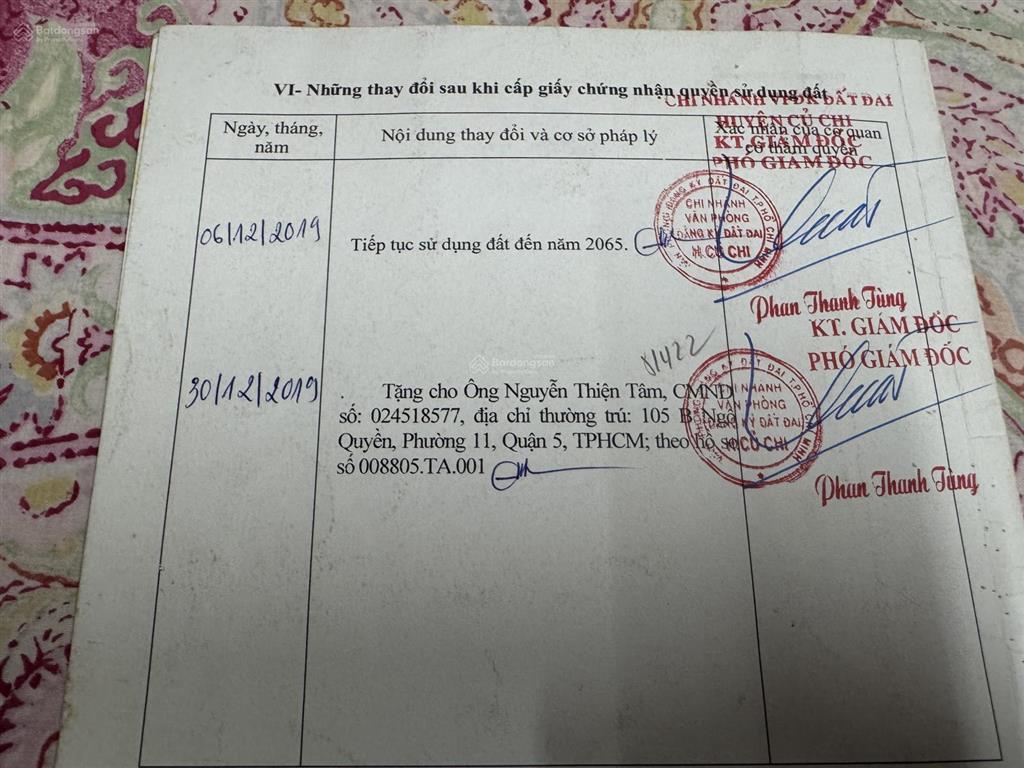 Batdongsan
by PropertyGuru
VI- Những thay đổi sau khi cấp giấy chứng nhận quyền sử dụng đất
CHI NHÁNH VPĐK ĐẤT ĐAI
HUYỆN CỦ CHI
KT. GIÁM ĐỐC
PHÓ GIÁM ĐỐC
Ngày, tháng,
năm
Nội dung thay đổi và cơ sở pháp lý
Xác nhận của cơ quan
có thẩm quyền
06/12/2019
Tiếp tục sử dụng đất đến năm 2065.
VĂN PHÒNG ĐĂNG KÝ ĐẤT ĐAI T.PHỐ HỒ CHÍ MINH
CHI NHÁNH
VĂN PHÒNG
ĐĂNG KÝ ĐẤT ĐAI
H.CỦ CHI
Phan Thanh Tùng
KT. GIÁM ĐỐC
PHÓ GIÁM ĐỐC
Batdongsan
by PropertyGuru
30/12/2019
Tặng cho Ông Nguyễn Thiện Tâm, CMND
số: 024518577, địa chỉ thường trú: 105 B Ngô
Quyền, Phường 11, Quận 5, TPHCM; theo hồ sơ
số 008805.TA.001
CHI NHÁNH
VĂN PHÒNG
ĐĂNG KÝ ĐẤT ĐAI
H.CỦ CHI
Phan Thanh Tùng